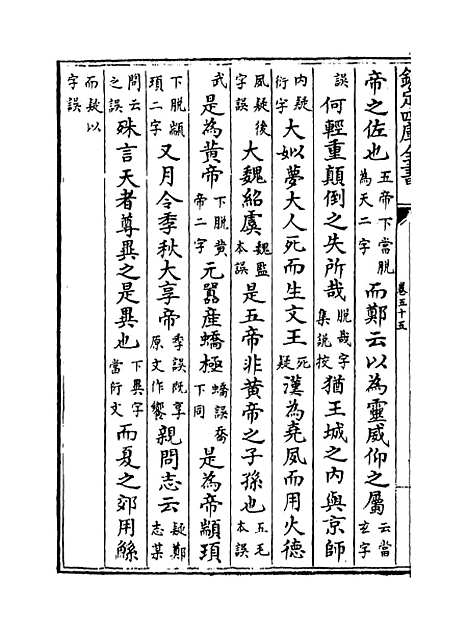 欽定四庫全書
卷五十五
帝之佐也五帝下當脱為天二字而鄭云以為靈威仰之屬云當玄字
誤何輕重顛倒之失所哉脱哉字集說挍猶王城之内與京師
内疑衍字大姒夢大人死而生文王死疑漢為堯夙而用火德
夙疑後字誤大魏紹虞魏監本誤是五帝非黄帝之子孫也五毛本誤
武是為黄帝下脱黄帝二字元囂産蟜極蟜誤喬下同是為帝顓頊
下脱顓頊二字又月令季秋大享帝季誤既享原文作饗親問志云疑鄭志某
問云之誤殊言天者尊異之是異也下異字當衍文而夏之郊用鯀
而疑以字誤